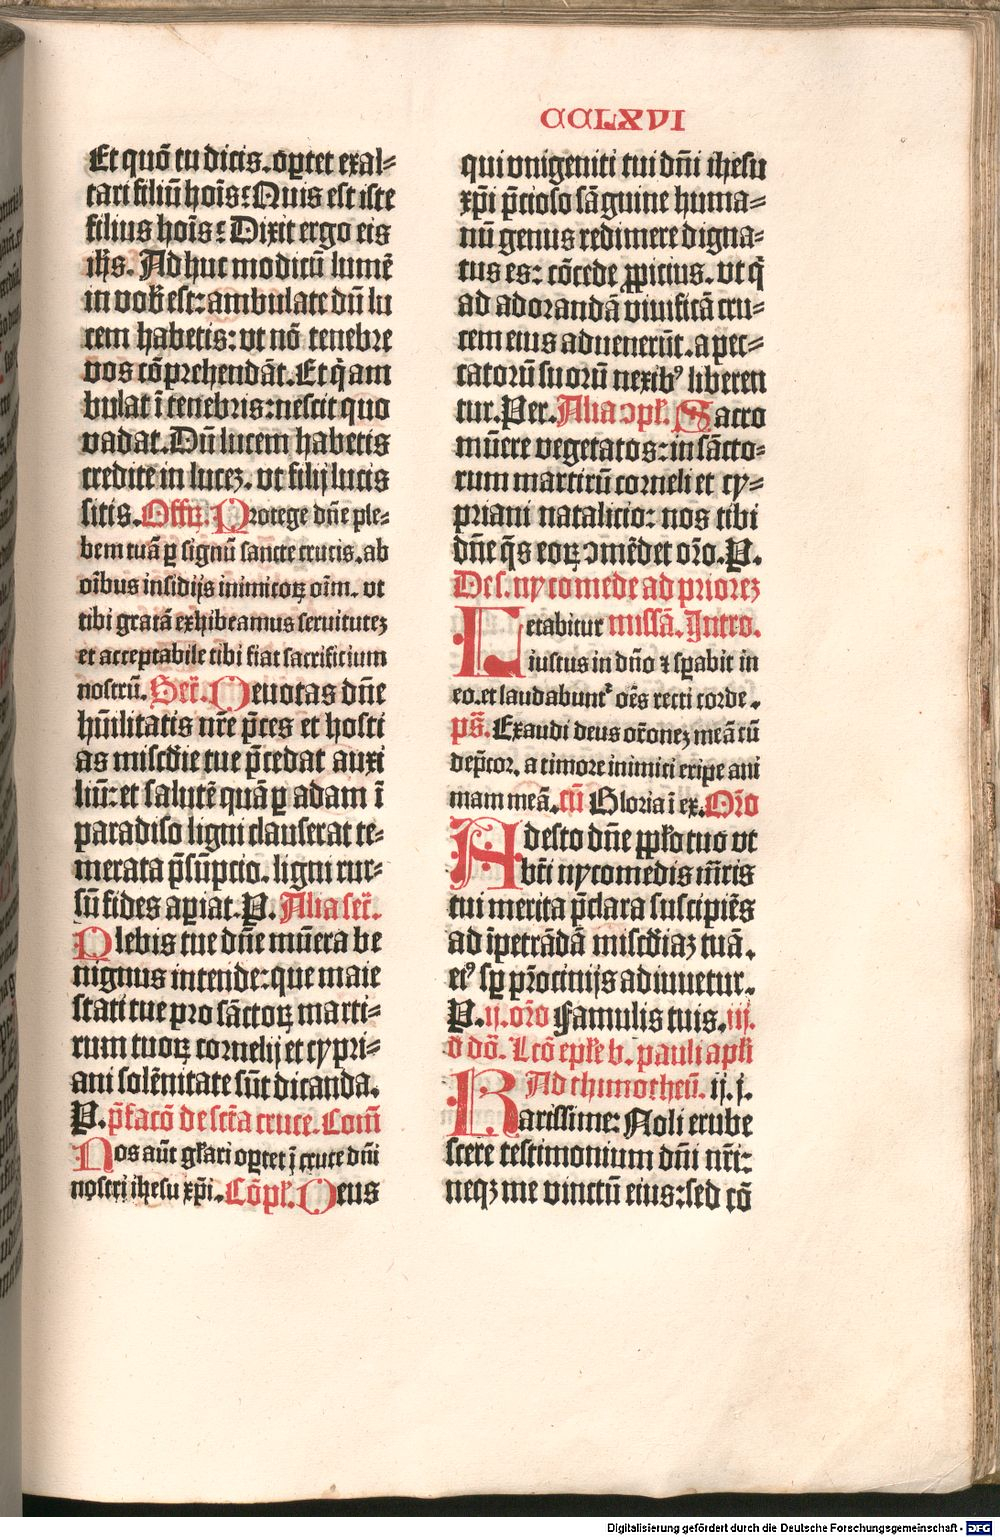 CCLXVI
Et quō tu dicis. oꝑtet exal⸗
tari filiū hoīs: Quis est iste
filius hoīs: Dixit ergo eis
ihs. Ad huc modicū lumē
in vob̄ est: ambulate dū lu
cem habetis: vt nō tenebre
vos cōprehendāt. Et q̄ am
bulat ī tenebris: nescit quo
vadat. Dū lucem habetis
credite in lucez. vt filij lucis
sitis. Offꝫ. Protege dn̄e ple⸗
bem tuā ꝑ signū sancte crucis. ab
oībus insidijs inimicoꝝ oīm. vt
tibi gratā exhibeamus seruitutez
et acceptabile tibi fiat sacrificium
nostrū. Secr̄. Deuotas dn̄e
hūilitatis nr̄e p̄ces et hosti
as misc̄die tue p̄cedat auxi
liū: et salutē quā ꝑ adam ī
paradiso ligni clauserat te⸗
merata p̄sūpcio. ligni rur⸗
sū fides aꝑiat. P. Alia secr̄.
Plebis tue dn̄e mūera be
nignus intende: que maie
stati tue pro sāctoꝝ marti⸗
rum tuoꝝ cornelij et cypri⸗
ani solēnitate sūt dicanda.
P. p̄facō de sct̄a cruce. Com̄
Nos aūt gl̄ari oꝑtet ī cruce dn̄i
nostri ihesu xp̄i. Cōpl̄. Deus
qui vnigeniti tui dn̄i ihesu
xp̄i p̄cioso sāguine huma⸗
nū genus redimere digna⸗
tus es: cōcede ꝓpicius. vt q̄
ad adorandā viuificā cru⸗
cem eius aduenerūt. a pec⸗
catorū suorū nexibꝰ liberen
tur. Per. Alia ↄpl̄. Sacro
mūere vegetatos: in sācto⸗
rum martirū corneli et cy⸗
priani natalicio: nos tibi
dn̄e q̄s eoꝝ ↄmēdet or̄o. P.
Des. nycomede ad priorez
Letabitur missā. Intro.
iustus in dn̄o ⁊ sꝑabit in
eo. et laudabunt᷑ oēs recti corde.
ps̄. Exaudi deus or̄onez meā cū
dep̄cor. a timore inimici eripe ani
mam meā. cū Gloria ī ex. Or̄o
Adesto dn̄e ppl̄o tuo vt
bt̄i nycomedis m̄ris
tui merita p̄clara suscipiēs
ad īpetrādā misc̄diaz tuā.
eiꝰ sꝑ pr̄ocinijs adiuuetur.
P. ij. or̄o Famulis tuis. iij.
d dō. Lcō epl̄e b. pauli apl̄i
Ad thimotheū. ij. j.
Karissime: Noli erube
scere testimonium dn̄i nr̄i:
neqꝫ me vinctū eius: sed cō
Digitalisierung gefördert durch die Deutsche Forschungsgemeinschaft - DFG